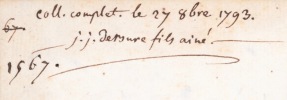 coll. complet. le 27 8bre 1793.
67.
j. j. debure fils ainé.
1567.